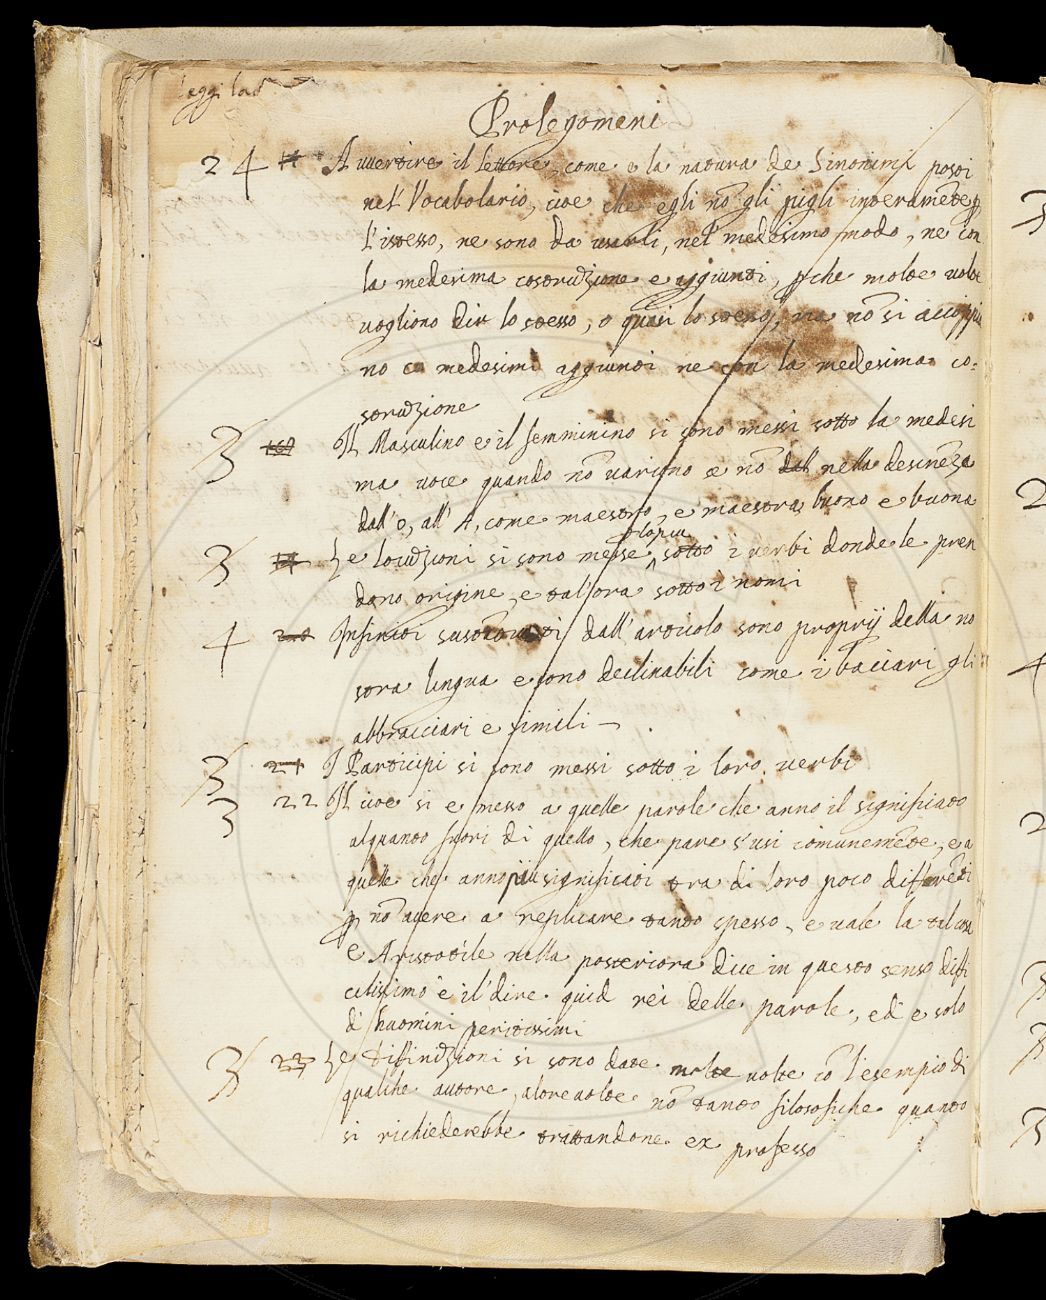 Leggi
Prolegomeni
24 Avvertire il lettore, come è la natura de Sinonimi posti
nel Vocabolario, cioe che egli nõ gli pigli interamẽte p
l'istesso, ne sono da usarli, nel medesimo modo, ne con
la medesima costruzione e aggiunti, pche molte volte
vogliono dir lo stesso, o quasi lo stesso, ma nõ si accoppia
no co medesimi aggiunti ne con la medesima co:
struzione
3 Il Masculino e il femminino si sono messi sotto la medesi
ma voce quando nõ variano e nõ dal nella desinẽza
dall'o, all'A, come maestro, e maestra, buono e buona
lo piu
3 Le locuzioni si sono messe sotto i verbi donde le pren
dano origine, e tal'ora sotto i nomi
4 20 Infiniti sustantivati dall'articolo sono proprij della no
stra lingua e sono declinabili come i baciari gli
abbracciari e simili
3 21 I Participi si sono messi sotto i loro verbi
3 22 Il cioe si e messo a quelle parole che anno il significato
alquanto fuori di quello, che pare s'usi comunemẽte, e a
quelle che anno più significati tra di loro poco differẽti
p nõ avere a replicare tanto spesso, e vale la tal cosa
e Aristotile nella posteriora dice in questo senso diffi
cilissimo è il dire quid rei delle parole, ed e solo
di huomini peritissimi
3 23 Le diffinizioni si sono date molte volte cõ l'esempio di
qualche autore, altre volte nõ tanto filosofiche quanto
si richiederebbe trattandone ex professo
3
2
4
2
3
3
3